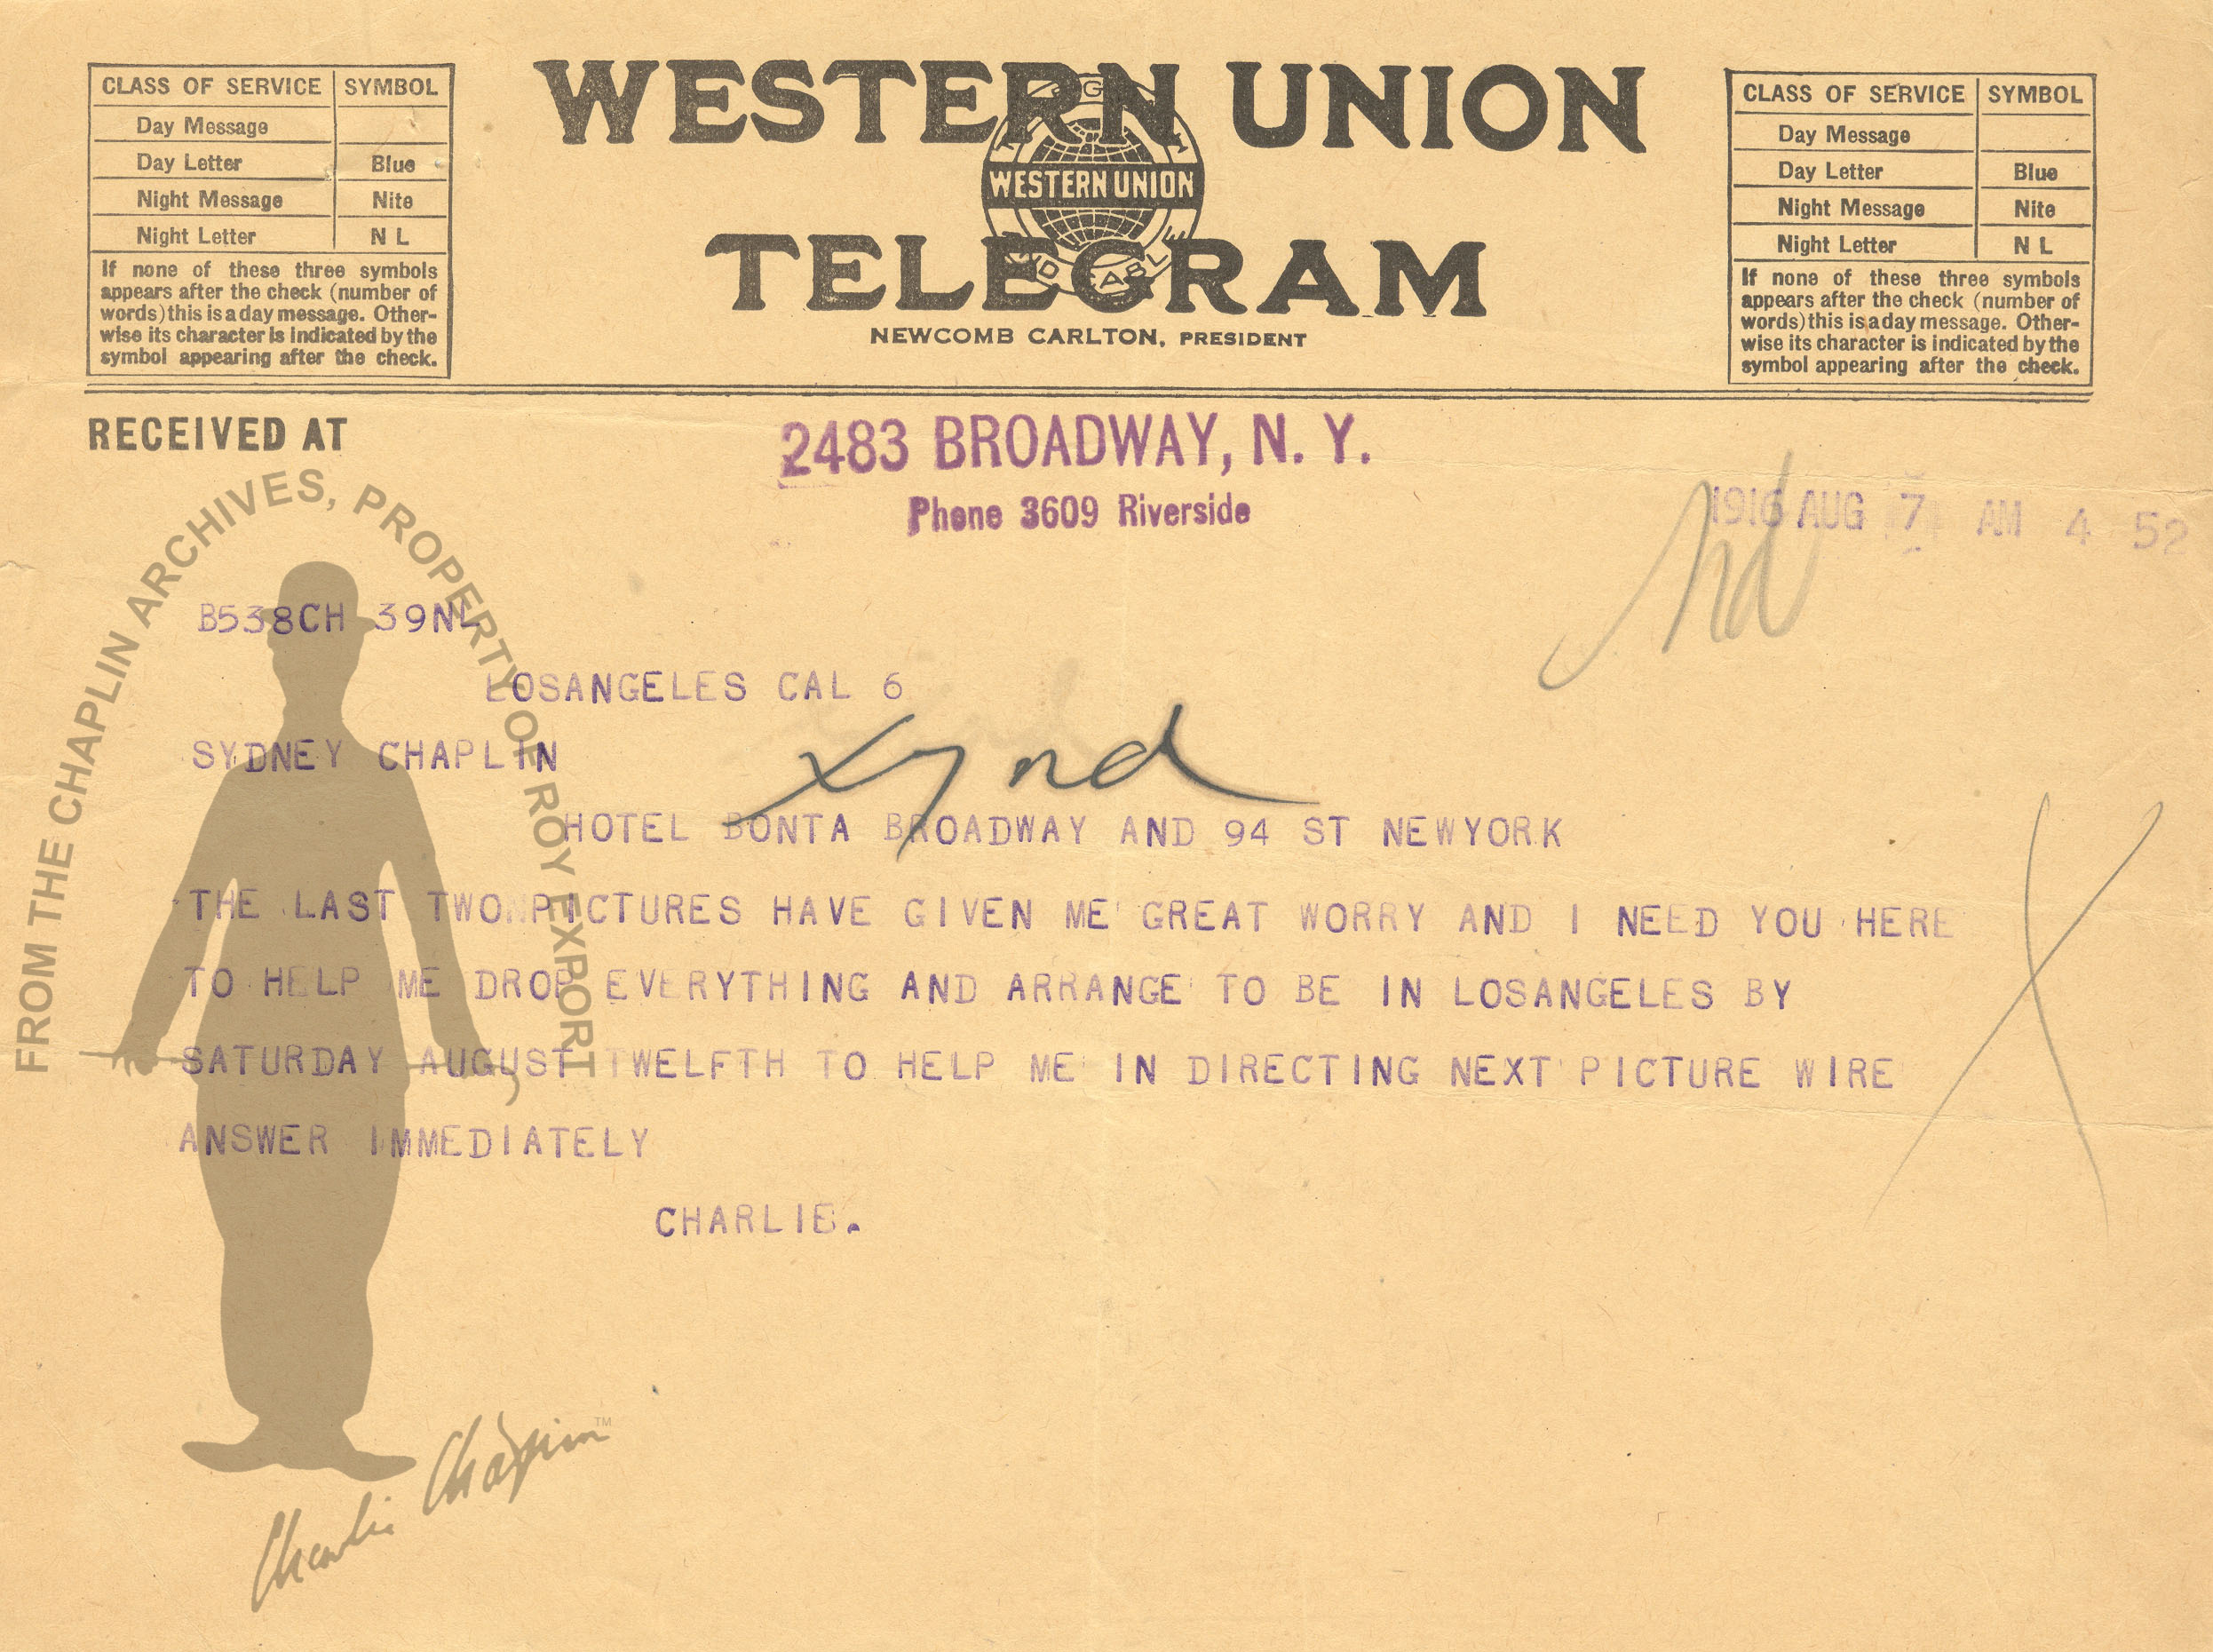 CLASS OF SERVICE SYMBOL
Day Message
Day Letter Blue
Night Message Nite
Night Letter N L
If none of these three symbols
appears after the check (number of
words) this is a day message. Other-
wise its character is indicated by the
symbol appearing after the check.
WESTERN UNION
WESTERN UNION
TELEGRAM
NEWCOMB CARLTON, PRESIDENT
CLASS OF SERVICE SYMBOL
Day Message
Day Letter Blue
Night Message Nite
Night Letter N L
If none of these three symbols
appears after the check (number of
words) this is a day message. Other-
wise its character is indicated by the
symbol appearing after the check.
RECEIVED AT
2483 BROADWAY, N. Y.
Phone 3609 Riverside
1916 AUG 7 AM 4 52
B538CH 39NL
LOSANGELES CAL 6
SYDNEY CHAPLIN
HOTEL BONTA BROADWAY AND 94 ST NEWYORK
THE LAST TWO PICTURES HAVE GIVEN ME GREAT WORRY AND I NEED YOU HERE
TO HELP ME DROP EVERYTHING AND ARRANGE TO BE IN LOSANGELES BY
SATURDAY AUGUST TWELFTH TO HELP ME IN DIRECTING NEXT PICTURE WIRE
ANSWER IMMEDIATELY
CHARLIE.
FROM THE CHAPLIN ARCHIVES, PROPERTY OF ROY EXPORT
Charlie Chaplin TM